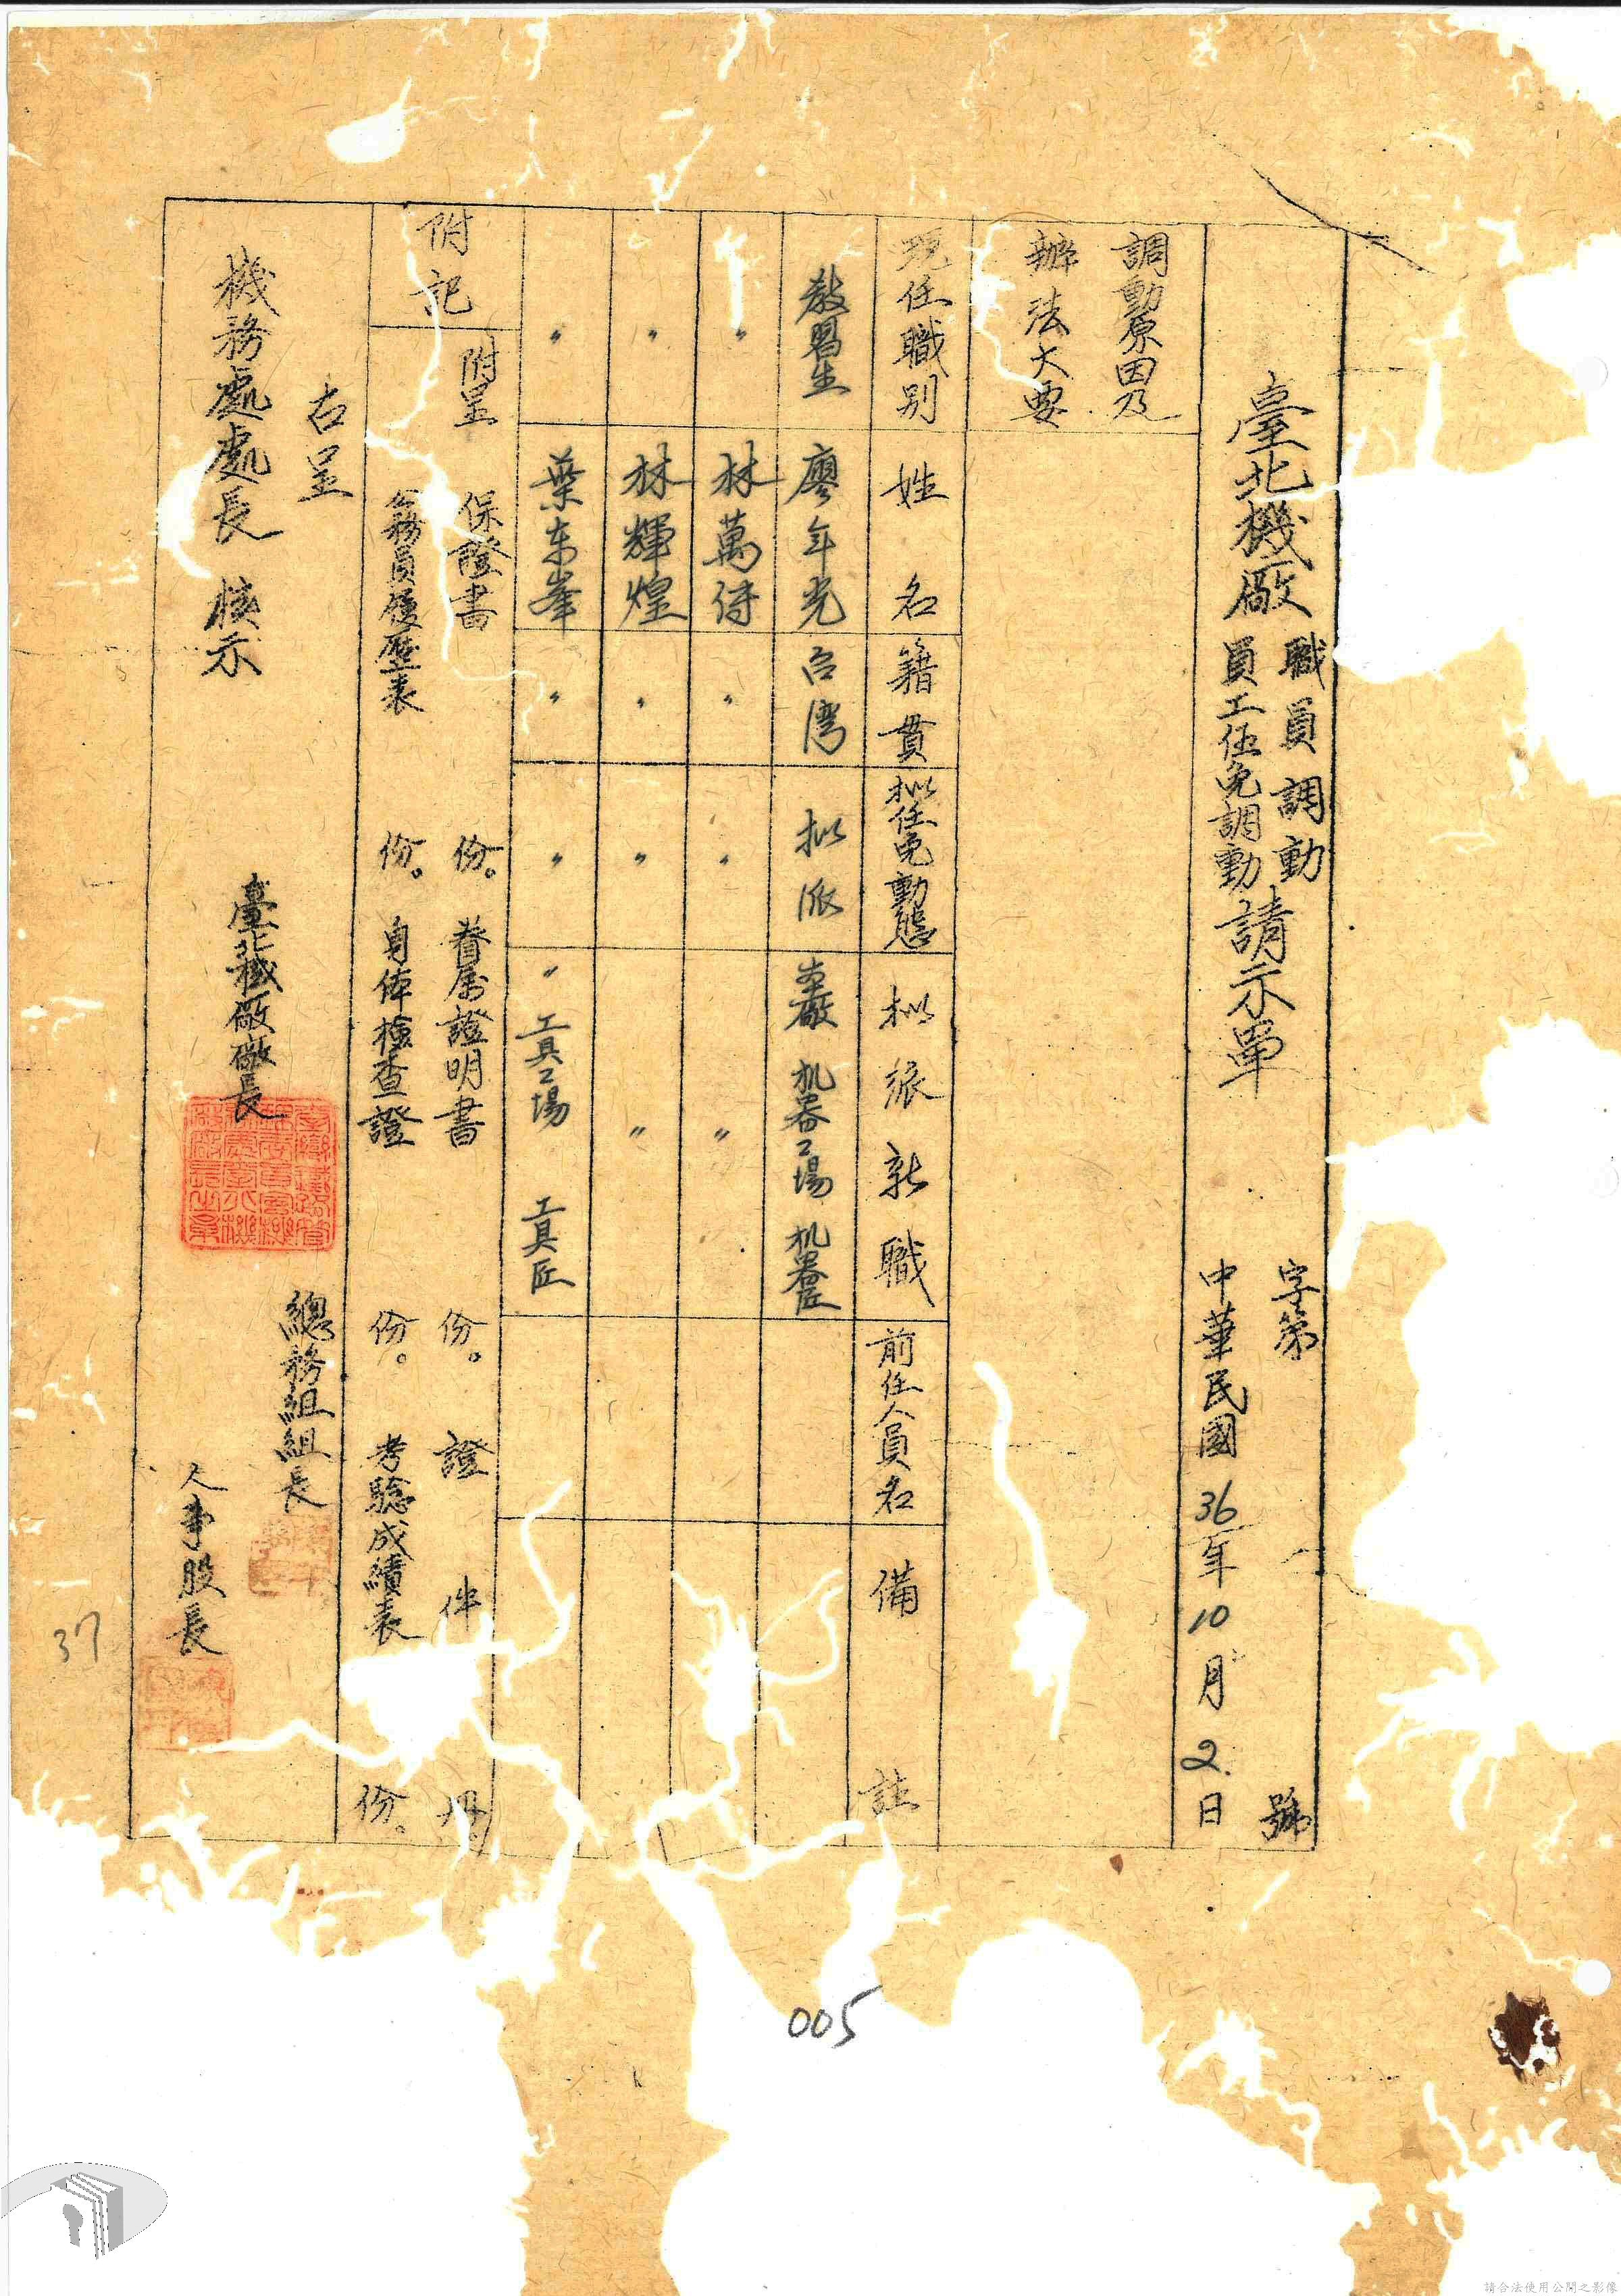 臺北機廠 職員調動 請示單
員工任免調動
字第 號
中華民國36年10月2日
調動原因及
辦法大要
現任職別 姓名 籍貫 拟任免動態 拟派新職 前任人員名 備註
教習生 廖年光 台湾 拟派 本廠 机器工場 机器匠
〃 林萬得 〃 〃 〃
〃 林輝煌 〃 〃 〃
〃 葉东峯 〃 〃 〃 工具工場 工具匠
附記
附呈 保證書 份。眷屬證明書 份。證件
務員履歷表 份。身体檢查證 份。考驗成績表 份。
右呈
機務處處長 核示
臺北機廠廠長
總務組組長
人事股長
37
005
請合法使用公開之影像